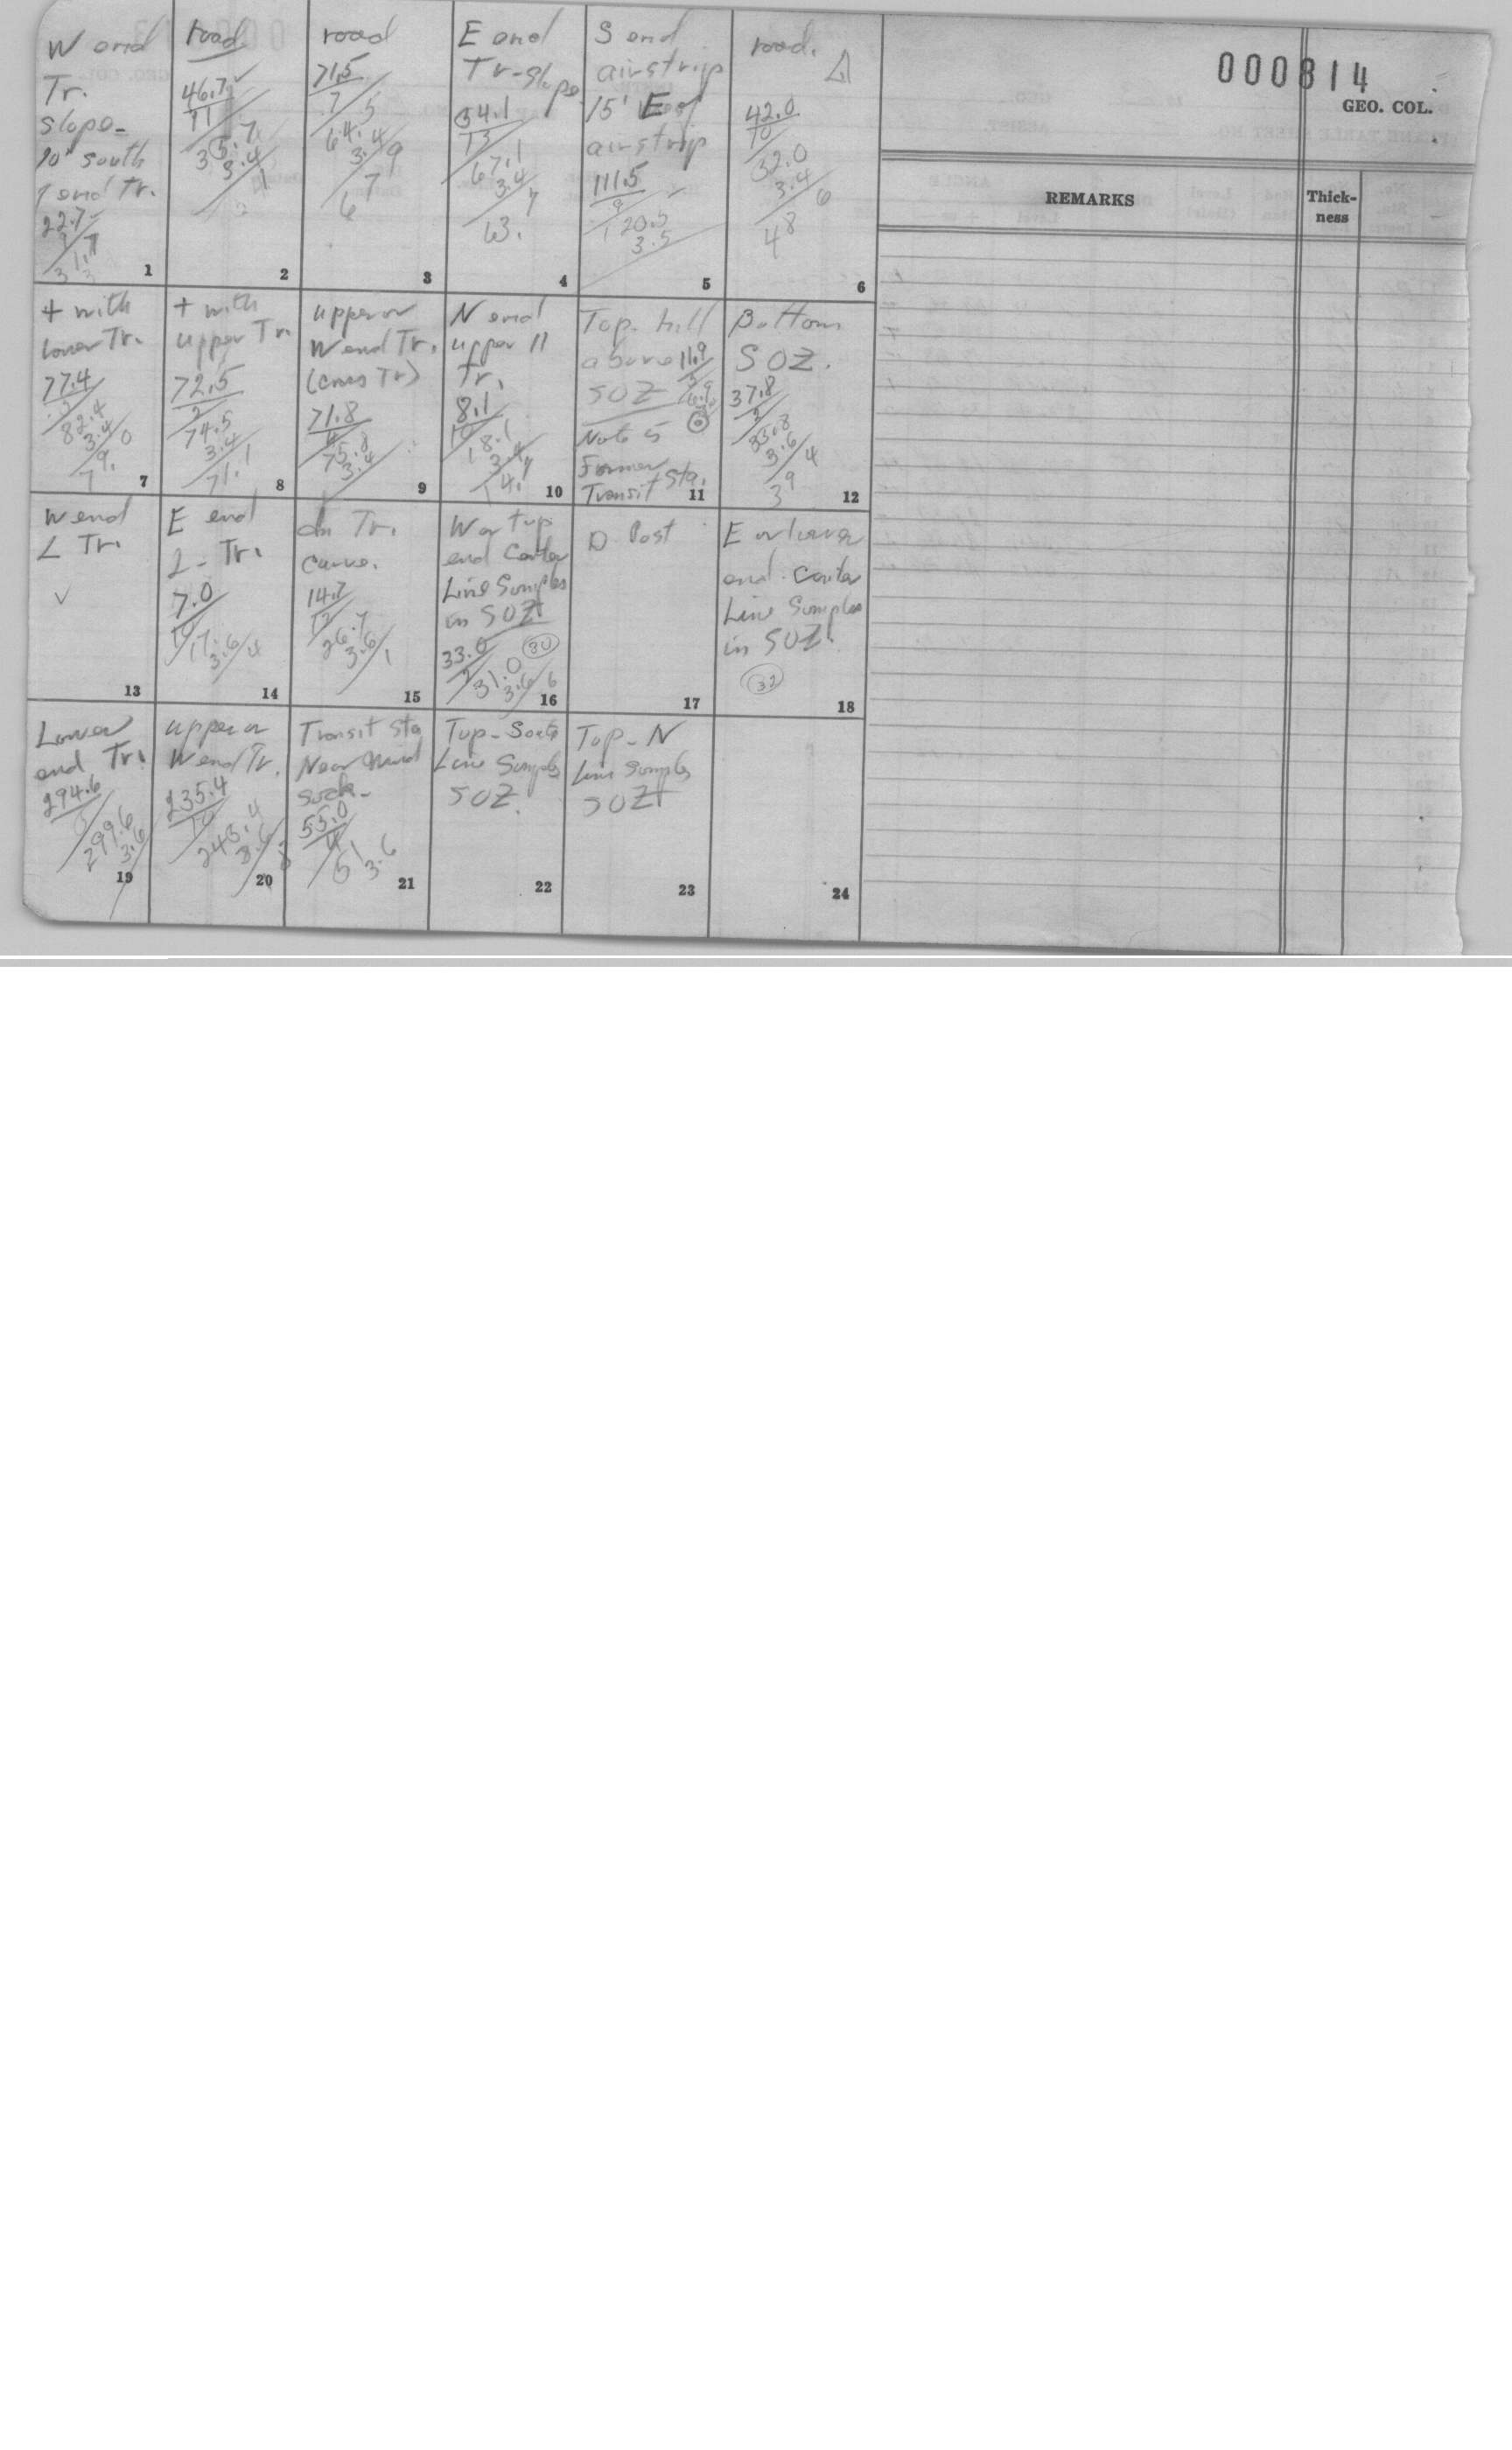 000814
GEO. COL.
REMARKS
Thick-
ness
W end
Tr.
slope-
10' south
end Tr.
22.7
1
road
46.7
11
35.7
3.4
2
road
71.5
7
64.5
3.4
67
3
E end
Tr-slope
54.1
13
67.1
3.4
63.
4
S end
airstrip
15' E of
airstrip
111.5
9
120.5
3.5
5
road.
42.0
10
32.0
3.4
48
6
+ with
lower Tr.
77.4
82.4
3.4
79.0
7
+ with
upper Tr.
72.5
2
74.5
3.4
71.1
8
upper or
W end Tr.
(cross Tr)
71.8
4
75.8
3.4
9
N end
upper 11
Tr.
8.1
10
18.1
3.4
14.7
10
Top hill
above 11.9
SOZ
Note 5
Former
Transit Sta.
11
Bottom
SOZ.
37.8
33.8
3.6
39
12
W end
L Tr.
13
E end
L - Tr.
7.0
10
17.6
3.6
14
on Tr.
curve.
14.7
12
26.7
3.6
15
W or top
end Center
Line Samples
in SOZ
33.0
30
2
31.0
3.6
16
D Post
17
E or lower
end Center
Line Samples
in SOZ
32
18
Lower
end Tr.
294.6
5
299.6
3.6
19
upper or
W end Tr.
235.4
10
245.4
3.6
20
Transit sta
Near Mud
suck-
55.0
4
51
3.6
21
Top - South
Line Samples
SOZ.
22
Top - N
Line Samples
SOZ
23
24